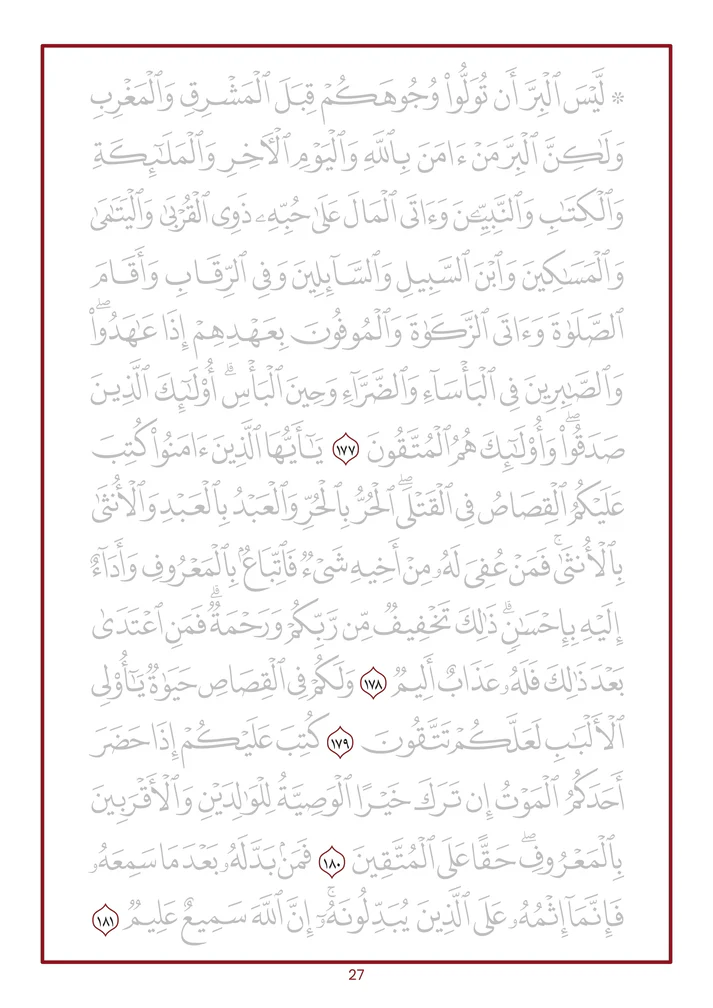 ۞ لَّيْسَ ٱلْبِرَّ أَن تُوَلُّوا۟ وُجُوهَكُمْ قِبَلَ ٱلْمَشْرِقِ وَٱلْمَغْرِبِ
وَلَٰكِنَّ ٱلْبِرَّ مَنْ ءَامَنَ بِٱللَّهِ وَٱلْيَوْمِ ٱلْـَٔاخِرِ وَٱلْمَلَٰٓئِكَةِ
وَٱلْكِتَٰبِ وَٱلنَّبِيِّـۧنَ وَءَاتَى ٱلْمَالَ عَلَىٰ حُبِّهِۦ ذَوِى ٱلْقُرْبَىٰ وَٱلْيَتَٰمَىٰ
وَٱلْمَسَٰكِينَ وَٱبْنَ ٱلسَّبِيلِ وَٱلسَّآئِلِينَ وَفِى ٱلرِّقَابِ وَأَقَامَ
ٱلصَّلَوٰةَ وَءَاتَى ٱلزَّكَوٰةَ وَٱلْمُوفُونَ بِعَهْدِهِمْ إِذَا عَٰهَدُوا۟ ۖ
وَٱلصَّٰبِرِينَ فِى ٱلْبَأْسَآءِ وَٱلضَّرَّآءِ وَحِينَ ٱلْبَأْسِ ۗ أُو۟لَٰٓئِكَ ٱلَّذِينَ
صَدَقُوا۟ ۖ وَأُو۟لَٰٓئِكَ هُمُ ٱلْمُتَّقُونَ ١٧٧ يَٰٓأَيُّهَا ٱلَّذِينَ ءَامَنُوا۟ كُتِبَ
عَلَيْكُمُ ٱلْقِصَاصُ فِى ٱلْقَتْلَى ۖ ٱلْحُرُّ بِٱلْحُرِّ وَٱلْعَبْدُ بِٱلْعَبْدِ وَٱلْأُنثَىٰ
بِٱلْأُنثَىٰ ۚ فَمَنْ عُفِىَ لَهُۥ مِنْ أَخِيهِ شَىْءٌ فَٱتِّبَاعٌۢ بِٱلْمَعْرُوفِ وَأَدَآءٌ
إِلَيْهِ بِإِحْسَٰنٍ ۗ ذَٰلِكَ تَخْفِيفٌ مِّن رَّبِّكُمْ وَرَحْمَةٌ ۗ فَمَنِ ٱعْتَدَىٰ
بَعْدَ ذَٰلِكَ فَلَهُۥ عَذَابٌ أَلِيمٌ ١٧٨ وَلَكُمْ فِى ٱلْقِصَاصِ حَيَوٰةٌ يَٰٓأُو۟لِى
ٱلْأَلْبَٰبِ لَعَلَّكُمْ تَتَّقُونَ ١٧٩ كُتِبَ عَلَيْكُمْ إِذَا حَضَرَ
أَحَدَكُمُ ٱلْمَوْتُ إِن تَرَكَ خَيْرًا ٱلْوَصِيَّةُ لِلْوَٰلِدَيْنِ وَٱلْأَقْرَبِينَ
بِٱلْمَعْرُوفِ ۖ حَقًّا عَلَى ٱلْمُتَّقِينَ ١٨٠ فَمَنۢ بَدَّلَهُۥ بَعْدَ مَا سَمِعَهُۥ
فَإِنَّمَآ إِثْمُهُۥ عَلَى ٱلَّذِينَ يُبَدِّلُونَهُۥٓ ۚ إِنَّ ٱللَّهَ سَمِيعٌ عَلِيمٌ ١٨١
27